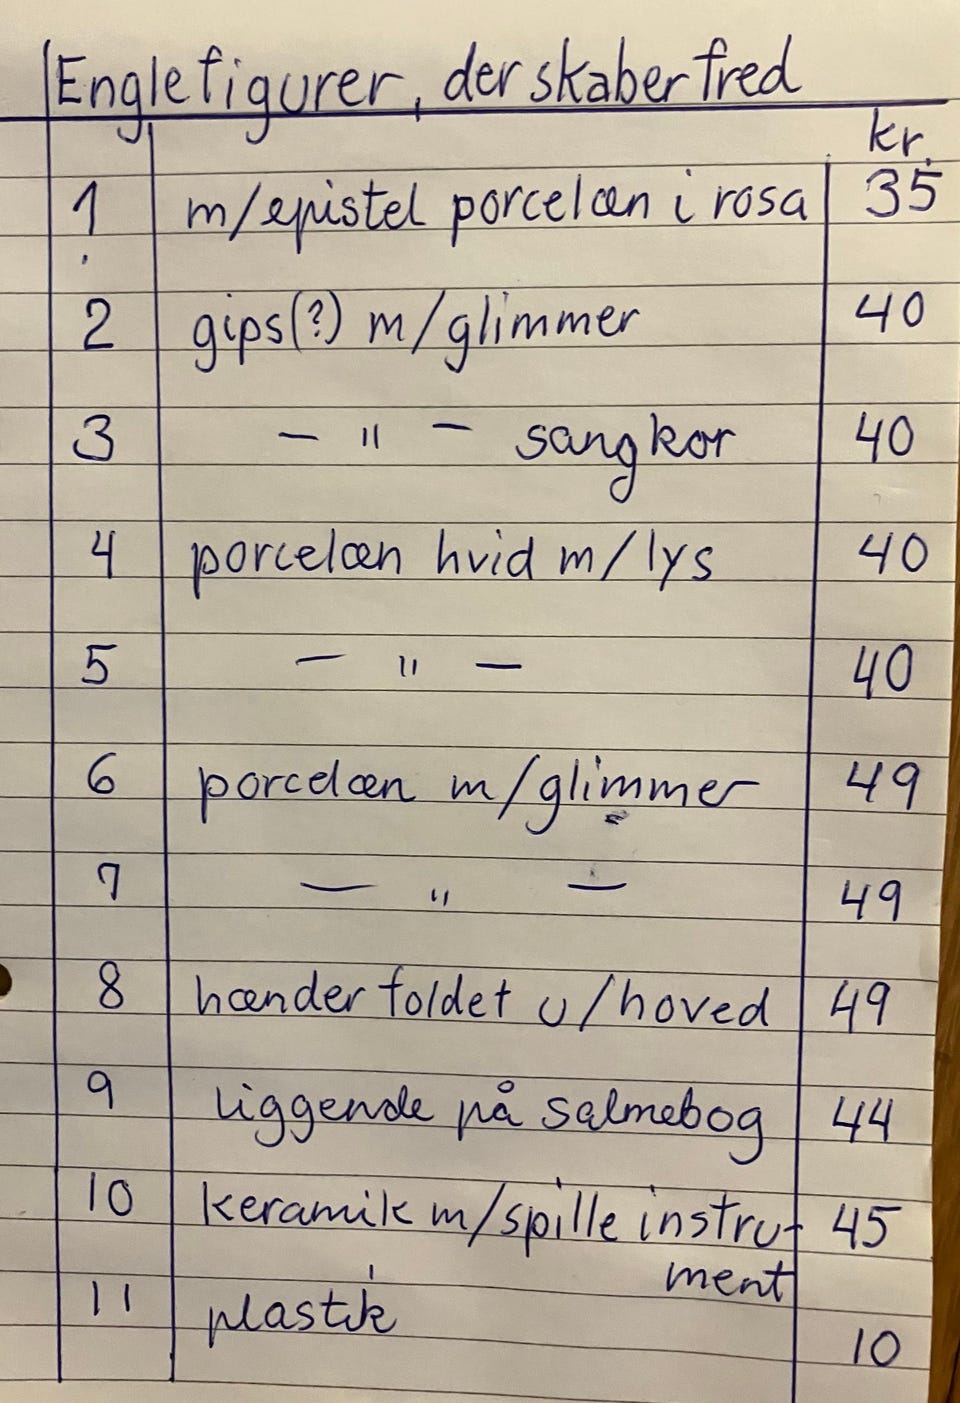 Englefigurer, der skaber fred
kr.
1 m/epistel porcelæn i rosa 35
2 gips(?) m/glimmer 40
3 — " — sangkor 40
4 porcelæn hvid m/lys 40
5 — " — 40
6 porcelæn m/glimmer 49
7 — " — 49
8 hænder foldet u/hoved 49
9 liggende på salmebog 44
10 keramik m/spille instru- 45
ment
11 plastik 10